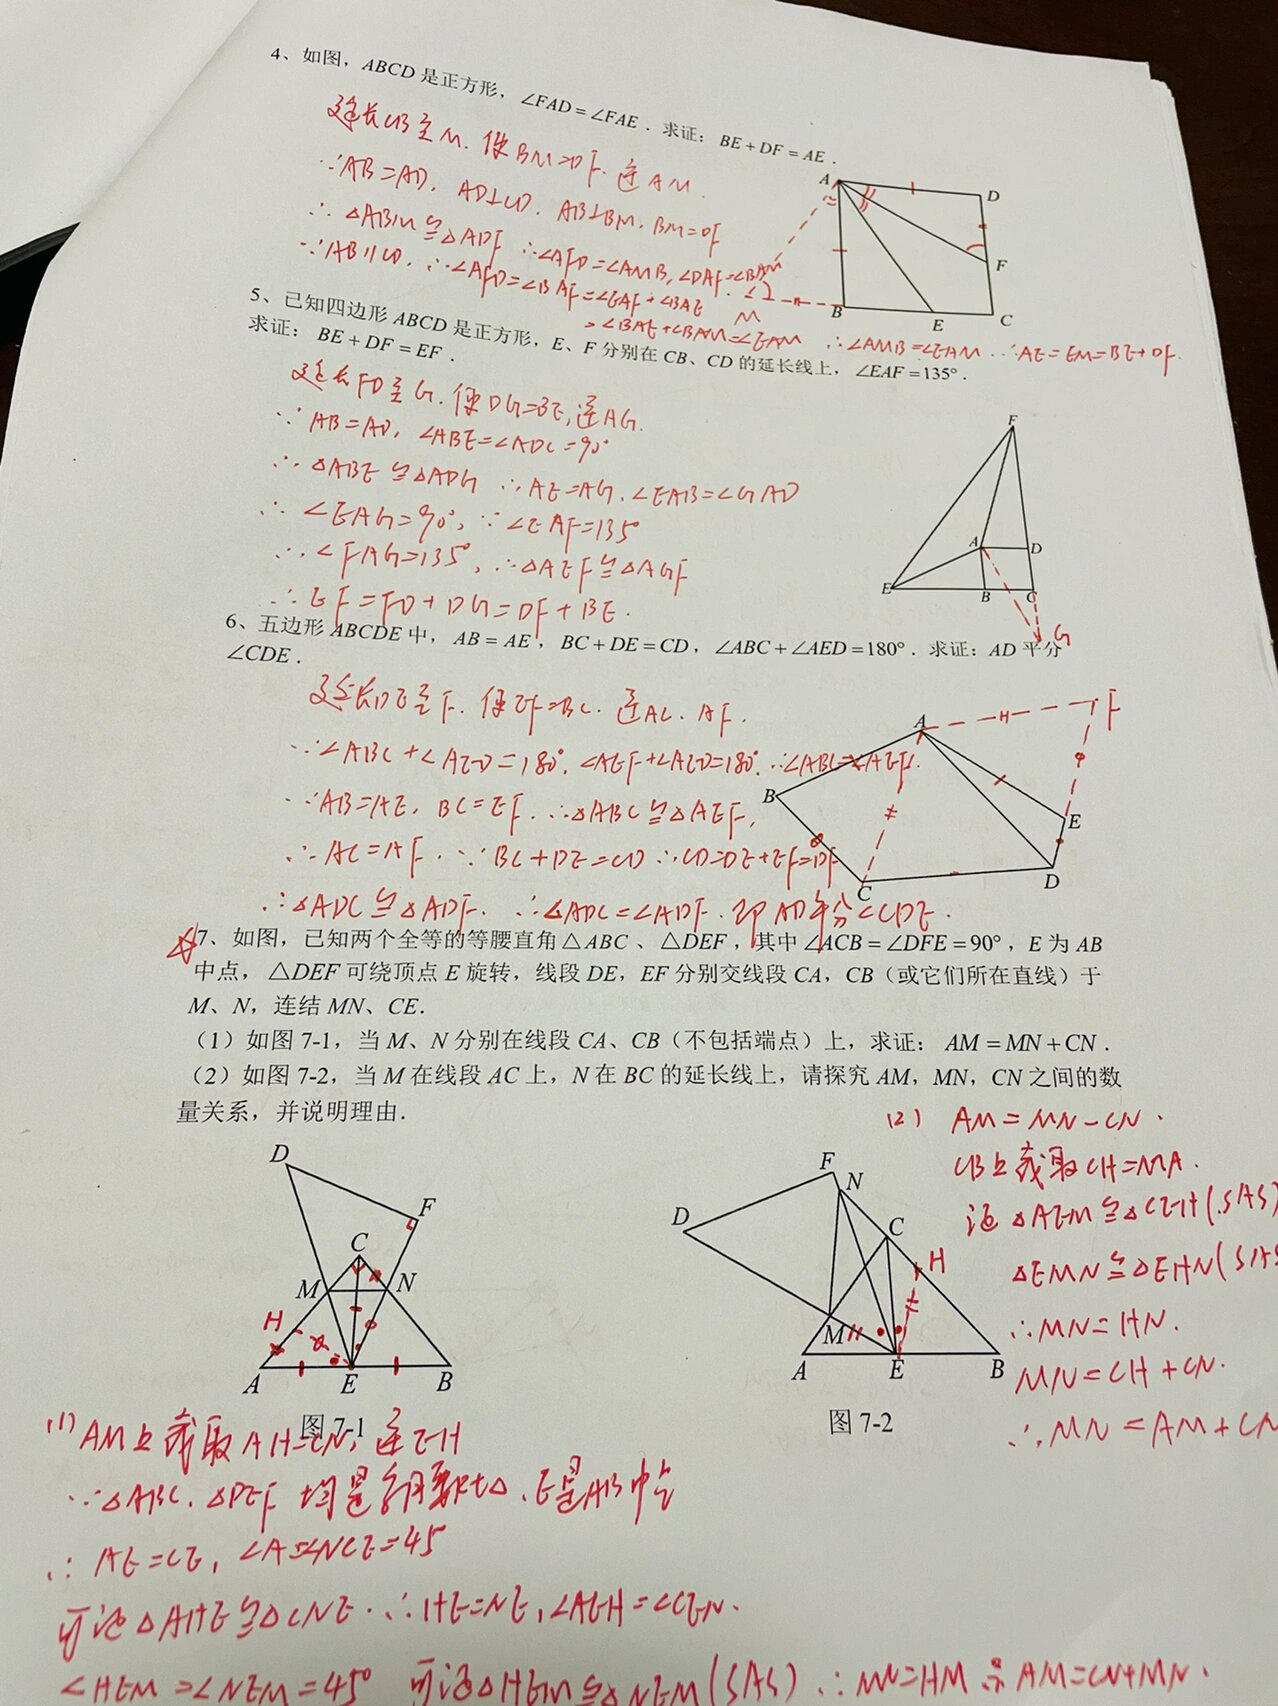 4、如图，ABCD 是正方形，∠FAD=∠FAE．求证：BE+DF=AE．
延长CB至M. 使BM=DF. 连AM.
∵AB=AD. AD⊥CD. AB⊥BM. BM=DF
∴△ABM≌△ADF ∴∠AFD=∠AMB, ∠DAF=∠BAM
∵AB∥CD. ∴∠AFD=∠BAF=∠EAF+∠BAE
=∠BAE+∠BAM=∠EAM ∴∠AMB=∠EAM ∴AE=EM=BE+DF.
A
D
F
B
E
C
M
5、已知四边形 ABCD 是正方形，E、F 分别在 CB、CD 的延长线上，∠EAF=135°．
求证：BE+DF=EF．
延长FD至G. 使DG=BE, 连AG.
∵AB=AD, ∠ABE=∠ADC=90°
∴△ABE≌△ADG ∴AE=AG. ∠EAB=∠GAD
∴∠EAG=90°, ∵∠EAF=135°
∴∠FAG=135°, ∴△AEF≌△AGF
∴EF=FD+DG=DF+BE.
F
A
D
E
B
C
G
6、五边形 ABCDE 中，AB=AE，BC+DE=CD，∠ABC+∠AED=180°．求证：AD 平分
∠CDE．
延长DE至F. 使EF=BC. 连AC. AF.
∵∠ABC+∠AED=180°. ∠AEF+∠AED=180°. ∴∠ABC=∠AEF.
∵AB=AE, BC=EF. ∴△ABC≌△AEF,
∴AC=AF. ∵BC+DE=CD ∴CD=DE+EF=DF
∴△ADC≌△ADF. ∴∠ADC=∠ADF. 即AD平分∠CDE.
A
F
B
E
C
D
7、如图，已知两个全等的等腰直角△ABC、△DEF，其中∠ACB=∠DFE=90°，E 为 AB
中点，△DEF 可绕顶点 E 旋转，线段 DE，EF 分别交线段 CA，CB（或它们所在直线）于
M、N，连结 MN、CE．
（1）如图 7-1，当 M、N 分别在线段 CA、CB（不包括端点）上，求证：AM=MN+CN．
（2）如图 7-2，当 M 在线段 AC 上，N 在 BC 的延长线上，请探究 AM，MN，CN 之间的数
量关系，并说明理由．
D
F
C
M
N
H
A
E
B
图 7-1
F
N
D
C
H
M
A
E
B
图 7-2
(2) AM=MN-CN.
CB上截取CH=MA.
证△AEM≌△CEH(SAS)
△EMN≌△EHN(SAS
∴MN=HN.
MN=CH+CN.
∴MN=AM+CN
(1) AM上截取AH=CN, 连EH
∵△ABC. △DEF 均是等腰Rt△, E是AB中点
∴AE=CE, ∠A=∠NCE=45°
可证△AHE≌△CNE. ∴HE=NE, ∠AEH=∠CEN.
∠HEM=∠NEM=45° 可证△HEM≌△NEM(SAS) ∴MN=HM ∴AM=CN+MN.